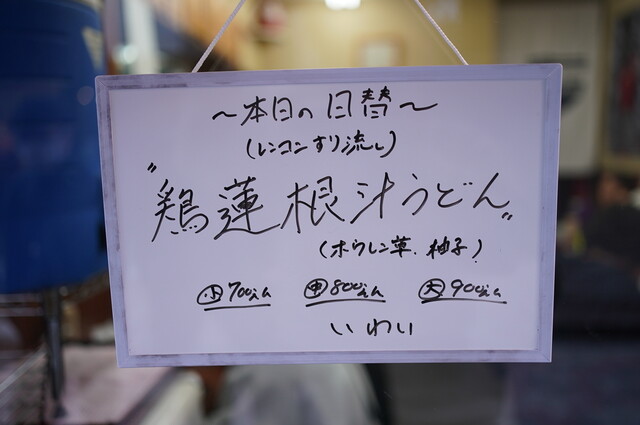 〜本日の日替〜
(レンコンすり流し)
〝鶏蓮根汁うどん〟
(ホウレン草、柚子)
小700込 中800込 大900込
いわい